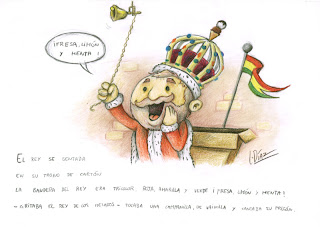 ¡FRESA, LIMÓN
Y MENTA!
EL REY SE SENTABA
EN SU TRONO DE CARTÓN.
LA BANDERA DEL REY ERA TRICOLOR, ROJA, AMARILLA Y VERDE ¡FRESA, LIMÓN Y MENTA!
- GRITABA EL REY DE LOS HELADOS - TOCABA UNA CAMPANILLA, DE VAINILLA Y LANZABA SU PREGÓN.